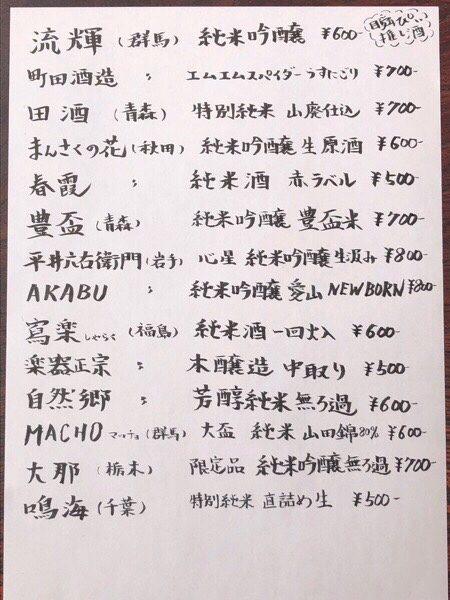 流輝(群馬) 純米吟醸 ¥600-
推し酒
町田酒造 〃 エムエムスパイダーうすにごり ¥700-
田酒(青森) 特別純米 山廃仕込 ¥700-
まんさくの花(秋田) 純米吟醸 生原酒 ¥600-
春霞 〃 純米酒 赤ラベル ¥500-
豊盃(青森) 純米吟醸 豊盃米 ¥700-
平井六右衛門(岩手) 心星 純米吟醸生汲み ¥800-
AKABU 〃 純米吟醸 愛山 NEWBORN ¥800-
寫楽しゃらく(福島) 純米酒 一回火入 ¥600-
楽器正宗 〃 本醸造 中取り ¥500-
自然郷 〃 芳醇純米 無ろ過 ¥600-
MACHO マッチョ(群馬) 大盃 純米 山田錦80% ¥600-
大那(栃木) 限定品 純米吟醸無ろ過 ¥700-
鳴海(千葉) 特別純米 直詰め生 ¥500-